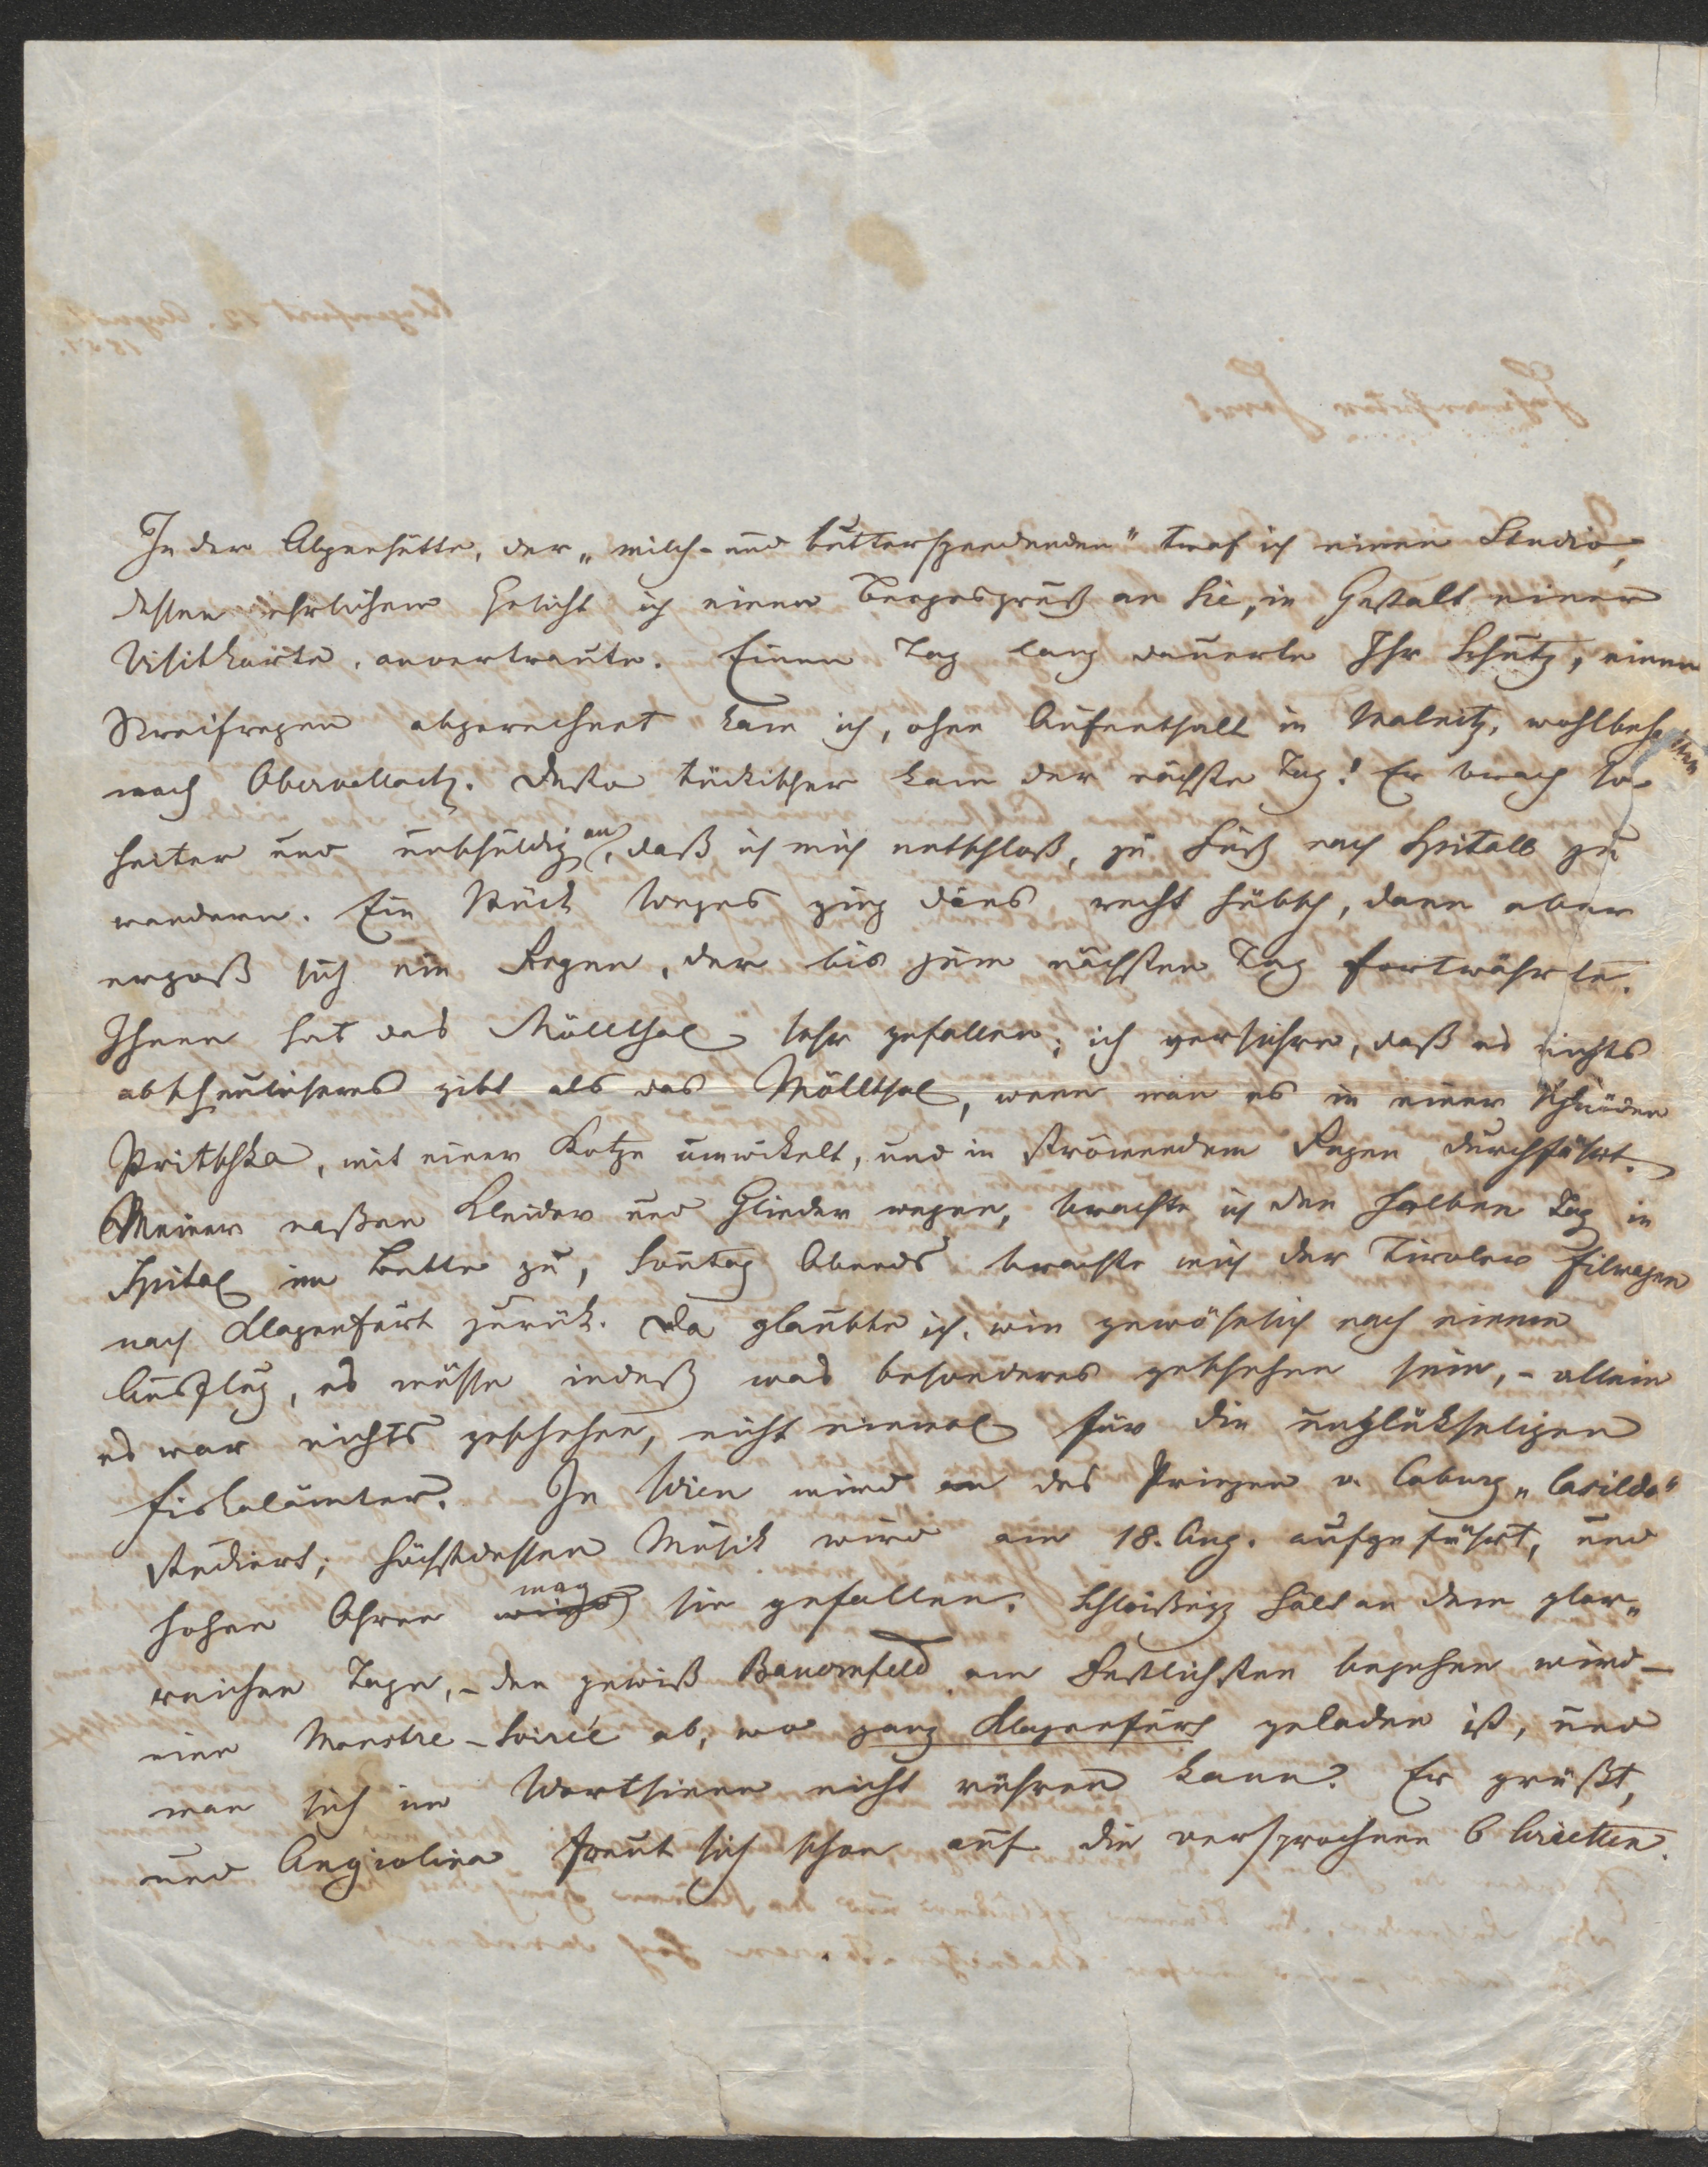 In der Alpenhütte, der „milch- und butterspendenden" traf ich einen Studio,
dessen ehrlichem Gesicht ich einen Bergesgruß an Sie, in Gestalt einer
Visitkarte, anvertraute. Einen Tag lang dauerte Ihr Schutz, einen
Streifregen abgerechnet kam ich, ohne Aufenthalt in Malnitz, wohlbehalten
nach Obervellach. Desto tückischer kam der nächste Tag! Er brach so
heiter und unschuldig an, daß ich mich entschloß, zu Fuß nach Spital zu
wandern. Ein Stück Weges ging dies recht hübsch, dann aber
ergoß sich ein Regen, der bis zum nächsten Tag fortwährte.
Ihnen hat das Möllthal sehr gefallen; ich versichre, daß es nichts
abscheulicheres gibt als das Möllthal, wenn man es in einer schnöden
Pritschka, mit einer Kotze umwikelt, und in strömendem Regen durchfährt.
Meiner naßen Kleider und Glieder wegen, brachte ich den halben Tag in
Spital im Bette zu, Sontag Abends brachte mich der Tiroler Eilwagen
nach Klagenfurt zurük. Da glaubte ich, wie gewöhnlich nach einem
Ausflug, es müsse indeß was besonderes geschehen sein, - allein
es war nichts geschehen, nicht einmal für die unglükseligen
Fiskalämter. In Wien wird an des Prinzen v. Coburg „Casilda"
studiert; höchstdessen Musik wird am 18. Aug. aufgeführt, und
hohen Ohren mag sie gefallen. Schloißnigg hält an dem glor„
reichen Tage, - den gewiß Bauernfeld am Festlichsten begehen wird -
eine Monstre-Soirée ab, wo ganz Klagenfurt geladen ist, und
man sich im Wortsinne nicht rühren kann. Er grüßt,
und Angiolina freut sich schon auf die versprochnen 6 Arietten.